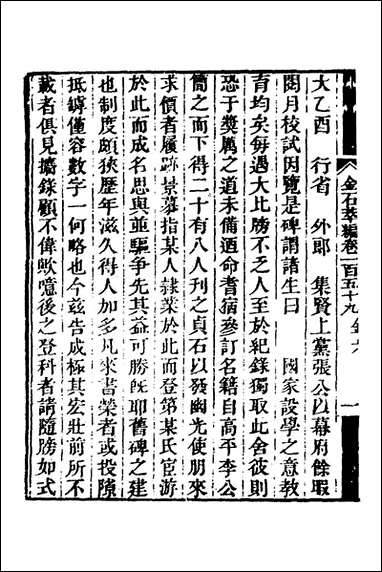 金石萃編卷一百五十九 金六 一
大乙酉 行省 外郎 集賢上黨張公以幕府餘暇
閱月校試因覽是碑謂諸生曰 國家設學之意教
育均矣每遇大比勝不乏人至於紀錄獨取此舍彼則
恐于奬厲之道未備酒命耆宿參訂名籍自高平李公
簡之而下得二十有八人刊之貞石以發幽光使朋來
求價者履跡景慕指某人隸業於此而登第某氏宦游
於此而成名思與並驅爭先其益可勝旣耶舊碑之建
也制度頗狹歷年滋久得人加多凡來書榮者或投隙
抵罅僅容數字一何略也今茲告成極其宏壯前所不
載者俱見攟錄顧不偉歟噫後之登科者請隨勝如式